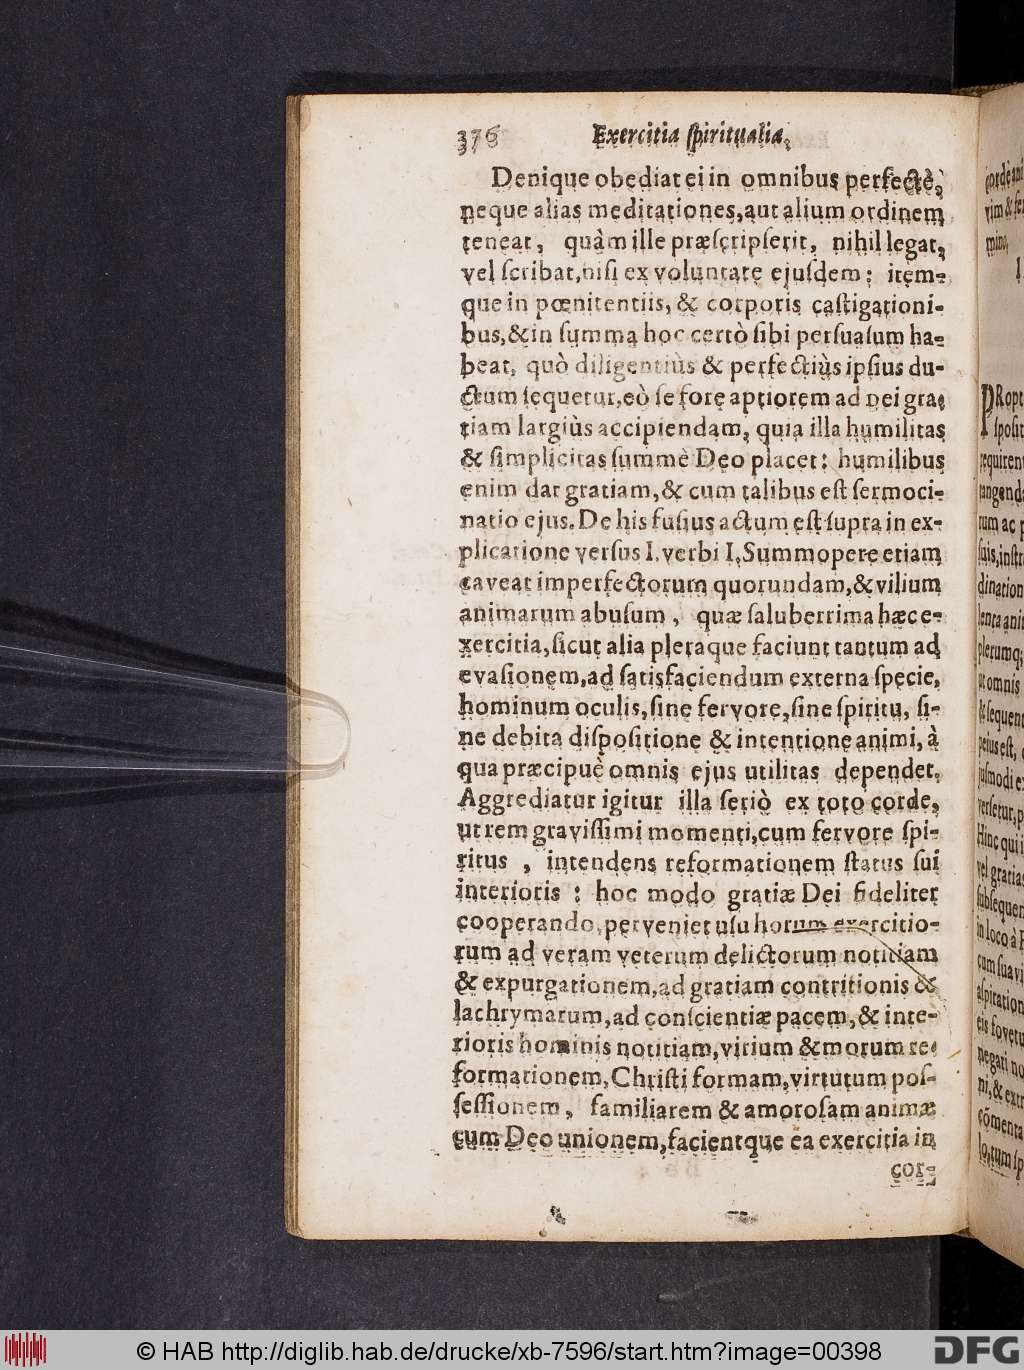 376 Exercitia ſpiritualia,
Denique obediat ei in omnibus perfectè,
neque alias meditationes, aut alium ordinem
teneat, quàm ille præſcripſerit, nihil legat,
vel ſcribat, niſi ex voluntate ejuſdem: item-
que in pœnitentiis, & corporis caſtigationi-
bus, & in ſumma hoc certò ſibi perſuaſum ha-
beat, quò diligentiùs & perfectiùs ipſius du-
ctum ſequetur, eò ſe fore aptiorem ad Dei gra-
tiam largiùs accipiendam, quia illa humilitas
& ſimplicitas ſummè Deo placet: humilibus
enim dat gratiam, & cum talibus eſt ſermoci-
natio ejus. De his fuſius actum eſt ſupra in ex-
plicatione verſus I. verbi I. Summopere etiam
caveat imperfectorum quorundam, & vilium
animarum abuſum, quæ ſaluberrima hæc e-
xercitia, ſicut alia pleraque faciunt tantum ad
evaſionem, ad ſatisfaciendum externa ſpecie,
hominum oculis, ſine fervore, ſine ſpiritu, ſi-
ne debita diſpoſitione & intentione animi, à
qua præcipuè omnis ejus utilitas dependet.
Aggrediatur igitur illa ſeriò ex toto corde,
ut rem graviſſimi momenti, cum fervore ſpi-
ritus, intendens reformationem ſtatus ſui
interioris: hoc modo gratiæ Dei fideliter
cooperando, perveniet uſu horum exercitio-
rum ad veram veterum delictorum notitiam
& expurgationem, ad gratiam contritionis &
lachrymarum, ad conſcientiæ pacem, & inte-
rioris hominis notitiam, vitium & morum re-
formationem, Chriſti formam, virtutum poſ-
ſeſſionem, familiarem & amoroſam animæ
cum Deo unionem, facientque ea exercitia in
cor-
PRopt
ſpoſit
requirent
rum ac p
dination
plerumq;
ut omnis
& ſequent
Hinc qui i
vel gratias
ſubſequen
in loco à
cum ſua vi
aſpiration
eis fovetu
negati no
ni, & extr
cōmenta
© HAB http://diglib.hab.de/drucke/xb-7596/start.htm?image=00398
DFG